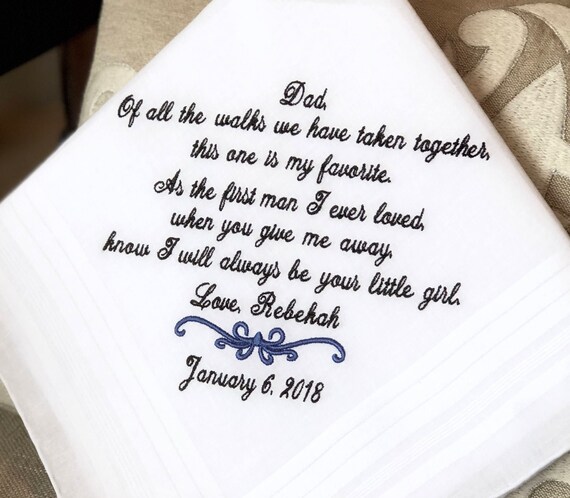 Dad,
Of all the walks we have taken together,
this one is my favorite.
As the first man I ever loved,
when you give me away,
know I will always be your little girl.
Love, Rebekah
January 6, 2018